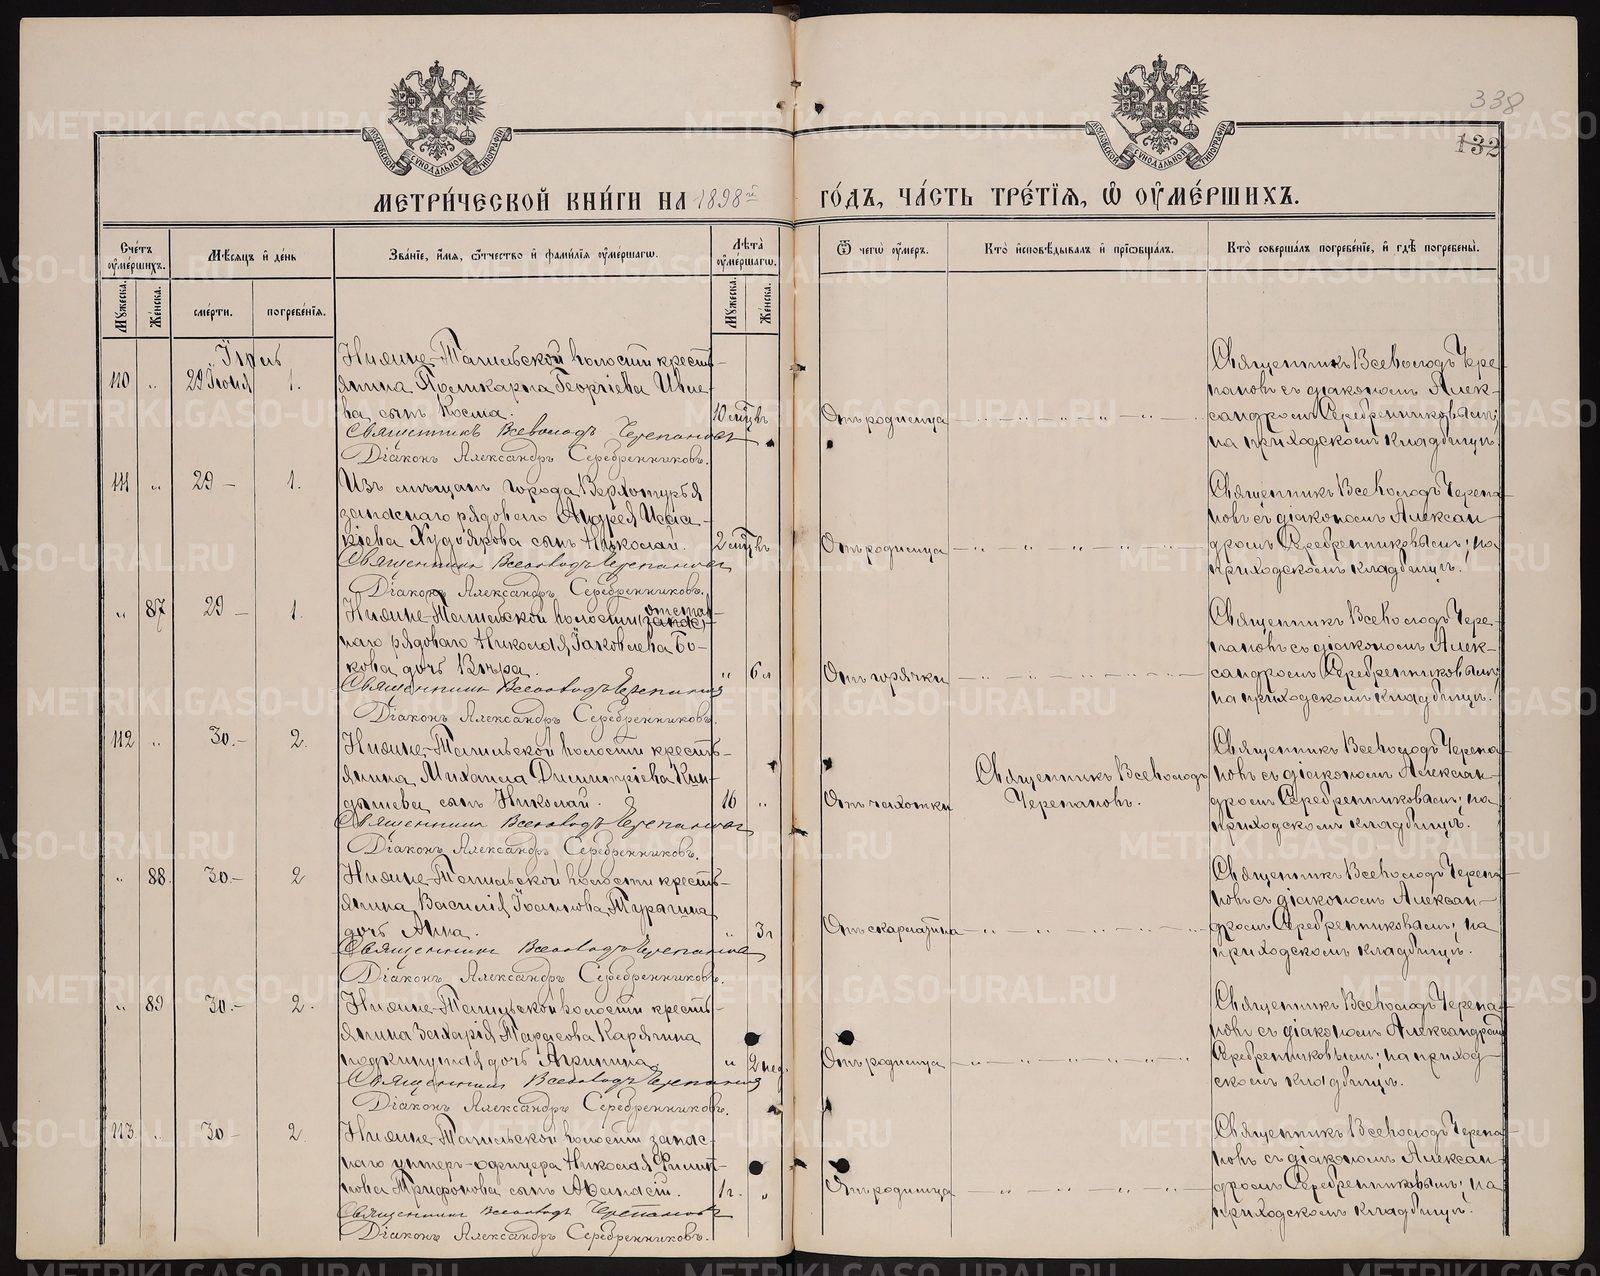 338
132
МЕТРИ́ЧЕСКОЙ КНИ́ГИ НА 1898й ГО́ДЪ, ЧА́СТЬ ТРЕ́ТІЯ, Ѡ ОУМЕ́РШИХЪ.
Сче́тъ оуме́ршихъ.
Мѣ́сяцъ и҆ де́нь
Зва́ніе, и҆́мя, ѻ҆́тчество и҆ фами́лія оуме́ршагѡ.
Лѣ́та оуме́ршагѡ.
Ѿ чегѡ̀ оу́меръ.
Кто̀ и҆сповѣ́дывалъ и҆ приѡбща́лъ.
Кто̀ соверша́лъ погребе́ніе, и҆ гдѣ̀ погребены̀.
Му́жеска.
Же́нска.
сме́рти.
погребе́нія.
Му́жеска.
Же́нска.
Іюль
110 " 29 Іюня 1.
Нижне-Тагильской волости кресть-
янина Поликарпа Георгіева
сынъ Косма.
10 мцвъ
Священникъ Всеволодъ Черепановъ
Діаконъ Александръ Серебренниковъ.
Отъ родимца
Священникъ Всеволодъ Чере-
пановъ съ діакономъ Алек-
сандромъ Серебренниковымъ;
на приходскомъ кладбищѣ.
111 " 29 – 1.
Изъ мѣщанъ города Верхотурья
запаснаго рядоваго Андрея Исаа-
кіева Худоярова сынъ Николай.
2 мцвъ
Священникъ Всеволодъ Черепановъ
Діаконъ Александръ Серебренниковъ.
Отъ родимца
Священникъ Всеволодъ Черепа-
новъ съ діакономъ Алексан-
дромъ Серебренниковымъ; на
приходскомъ кладбищѣ.
" 87 29 – 1.
Нижне-Тагильской волости (запас)
наго рядоваго Николая Іаковлева Бо-
кова дочь Вѣра.
" 6 л
Священникъ Всеволодъ Черепановъ
Діаконъ Александръ Серебренниковъ.
Отъ горячки
Священникъ Всеволодъ Чере-
пановъ съ діакономъ Алек-
сандромъ Серебренниковымъ;
на приходскомъ кладбищѣ.
112 " 30.– 2.
Нижне-Тагильской волости кресть-
янина Михаила Димитріева Кин-
дышева сынъ Николай.
16 "
Священникъ Всеволодъ Черепановъ
Діаконъ Александръ Серебренниковъ.
Отъ чахотки
Священникъ Всеволодъ
Черепановъ.
Священникъ Всеволодъ Черепа-
новъ съ діакономъ Алексан-
дромъ Серебренниковымъ; на
приходскомъ кладбищѣ.
" 88. 30.– 2
Нижне-Тагильской волости кресть-
янина Василія Іоаннова
дочь Анна.
" 3 г
Священникъ Всеволодъ Черепановъ
Діаконъ Александръ Серебренниковъ.
Отъ скарлатина
Священникъ Всеволодъ Черепа-
новъ съ діакономъ Алексан-
дромъ Серебренниковымъ; на
приходскомъ кладбищѣ.
" 89 30.– 2.
Нижне-Тагильской волости кресть-
янина Захарія Тарасова Карягина
подкинутая дочь Агриппина.
" 2 нед.
Священникъ Всеволодъ Черепановъ
Діаконъ Александръ Серебренниковъ.
Отъ родимца
Священникъ Всеволодъ Черепа-
новъ съ діакономъ Александромъ
Серебренниковымъ; на приход-
скомъ кладбищѣ.
113. " 30– 2.
Нижне-Тагильской волости запас-
наго унтеръ-офицера Николая Филип-
пова Трифонова сынъ
1 г. "
Священникъ Всеволодъ Черепановъ
Діаконъ Александръ Серебренниковъ.
Отъ родимца
Священникъ Всеволодъ Черепа-
новъ съ діакономъ Алексан-
дромъ Серебренниковымъ; на
приходскомъ кладбищѣ.